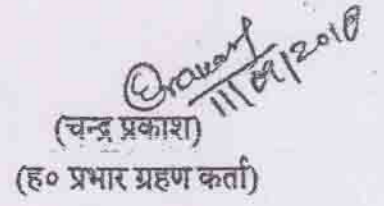 11/09/2018
(चन्द्र प्रकाश)
(ह० प्रभार ग्रहण कर्ता)